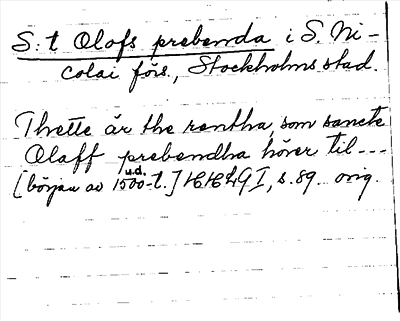 S:t Olofs prebenda i S. Ni-
colai förs., Stockholms stad.
Thette är the rentha, som sancte
Olaff prebendha hörer til ---
[början av 1500-t.] HHLGI, s. 89. orig.
u.d.